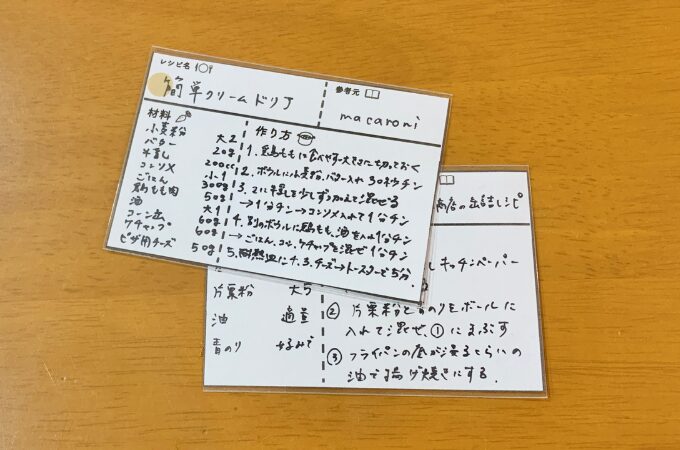 レシピ名
簡単クリームドリア
参考元
macaroni
材料
小麦粉 大2
バター 20g
牛乳 200cc
コンソメ 小1
ごはん 300g
鶏もも肉 50g
油 大1
コーン缶 60g
ケチャップ 60g
ピザ用チーズ 50g
作り方
1. 鶏ももは食べやすい大きさに切っておく
2. ボウルに小麦粉、バター入れ30秒チン
3. 2に牛乳を少しずつ加えて混ぜる
→1分チン→コンソメ入れて1分チン
4. 別のボウルに鶏もも、油を入れ1分チン
→ごはん、コーン、ケチャップを混ぜ1分チン
5. 耐熱皿に4.3.チーズ→トースターで5分.
商店の缶詰レシピ
しキッチンペーパー
片栗粉 大5
油 適量
青のり 好みで
② 片栗粉と青のりをボールに
入れて混ぜ、①にまぶす
③ フライパンの底が浸るくらいの
油で揚げ焼きにする.